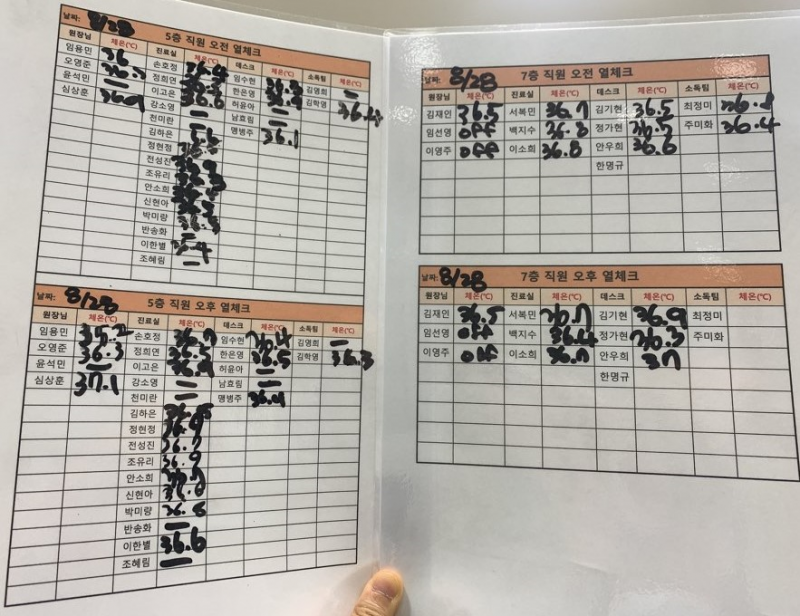 날짜: 8/28 5층 직원 오전 열체크
원장님 체온(℃) 진료실 체온(℃) 데스크 체온(℃) 소독팀 체온(℃)
임용민 36 손호정 임수현 김영희 —
오영준 정희연 한은영 김학영
윤석민 — 이고은 허윤아
심상훈 강소영 36.6 남효림 —
전미란 — 맹병주 36.1
김하은
정현정
전성진
조유리
안소희
신현아
박미랑
반송화 —
이한별
조혜림 —
날짜: 8/28 5층 직원 오후 열체크
원장님 체온(℃) 진료실 체온(℃) 데스크 체온(℃) 소독팀 체온(℃)
임용민 35.2 손호정 36.7 임수현 36.4 김영희 —
오영준 36.3 정희연 36.5 한은영 36.5 김학영 36.3
윤석민 — 이고은 허윤아 —
심상훈 37.1 강소영 — 남효림 —
전미란 — 맹병주
김하은
정현정
전성진 36.7
조유리
안소희
신현아
박미랑 36.6
반송화 —
이한별 36.6
조혜림 —
날짜: 8/28 7층 직원 오전 열체크
원장님 체온(℃) 진료실 체온(℃) 데스크 체온(℃) 소독팀 체온(℃)
김재인 36.5 서복민 36.7 김기현 36.5 최정미
임선영 off 백지수 36.8 정가현 36.7 주미화 36.4
이영주 off 이소희 36.8 안우희 36.6
한명규
날짜: 8/28 7층 직원 오후 열체크
원장님 체온(℃) 진료실 체온(℃) 데스크 체온(℃) 소독팀 체온(℃)
김재인 36.5 서복민 36.7 김기현 36.9 최정미
임선영 off 백지수 36.4 정가현 36.3 주미화
이영주 off 이소희 36.7 안우희 37
한명규